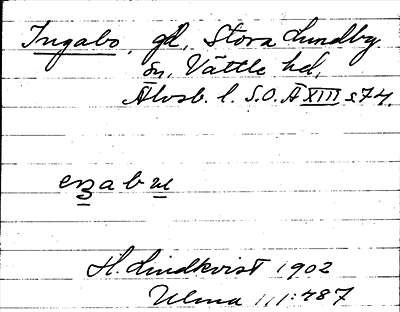 Ingabo, gd, Stora Lundby
sn, Vättle hd,
Älvsb. l. S.O. Ä XIII s74.
H. Lindkvist 1902
Ulma 111:787